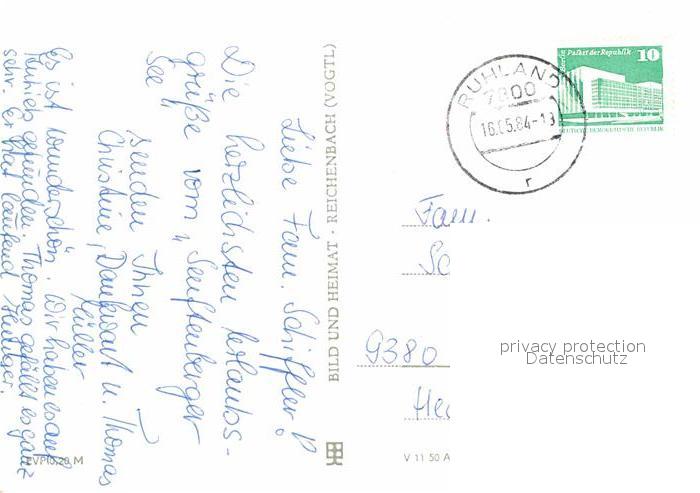 Liebe Fam. Schiffler!
Die herzlichsten Urlaubs-
grüße vom "Senftenberger
See"
senden Ihnen
Christine, Dankwart u. Thomas
Müller
Es ist wunderschön. Wir haben es auf
gefunden. Thomas gefällt es ganz
sehr. Er hat laufend Hunger.
BILD UND HEIMAT · REICHENBACH (VOGTL)
EVP 0,20 M
V 11 50 A
RUHLAND
7800
16.05.84-18
r
Berlin Palast der Republik 10
DEUTSCHE DEMOKRATISCHE REPUBLIK
Fam.
Sc
9380
privacy protection
Datenschutz